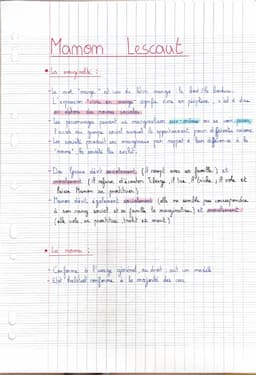 Manon Lescaut
• La marginalité :
- Le mot "marge" est issu du latin margo : le bord / la bordure.
L'expression "vivre en marge" signifie vivre en périphérie, c'est à dire
en dehors des normes sociales.
- Les personnages peuvent se marginaliser eux-mêmes ou se voir
l'accès au groupe social auquel ils appartiennent pour différentes raisons.
- Les sociétés produisent ses marginaux par rapport à leur différence à la
"norme", la société les exclut.
- Des Grieux dévie socialement (il rompt avec sa famille) et
moralement (il refuse d'écouter Tiberge, il tue, il triche, il vole et
laisse Manon se prostituer)
- Manon dévie également socialement (elle ne semble pas correspondre
à son rang social et sa famille la marginalise) et moralement
(elle vole, se prostitue, trahit et ment)
• La norme :
- Conforme à l'usage général, au droit, suit un modèle
- Etat habituel conforme à la majorité des cas.